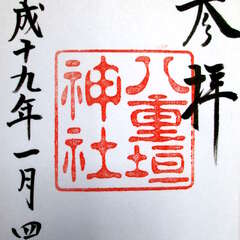 参拝
八重垣
神社
成十九年一月四